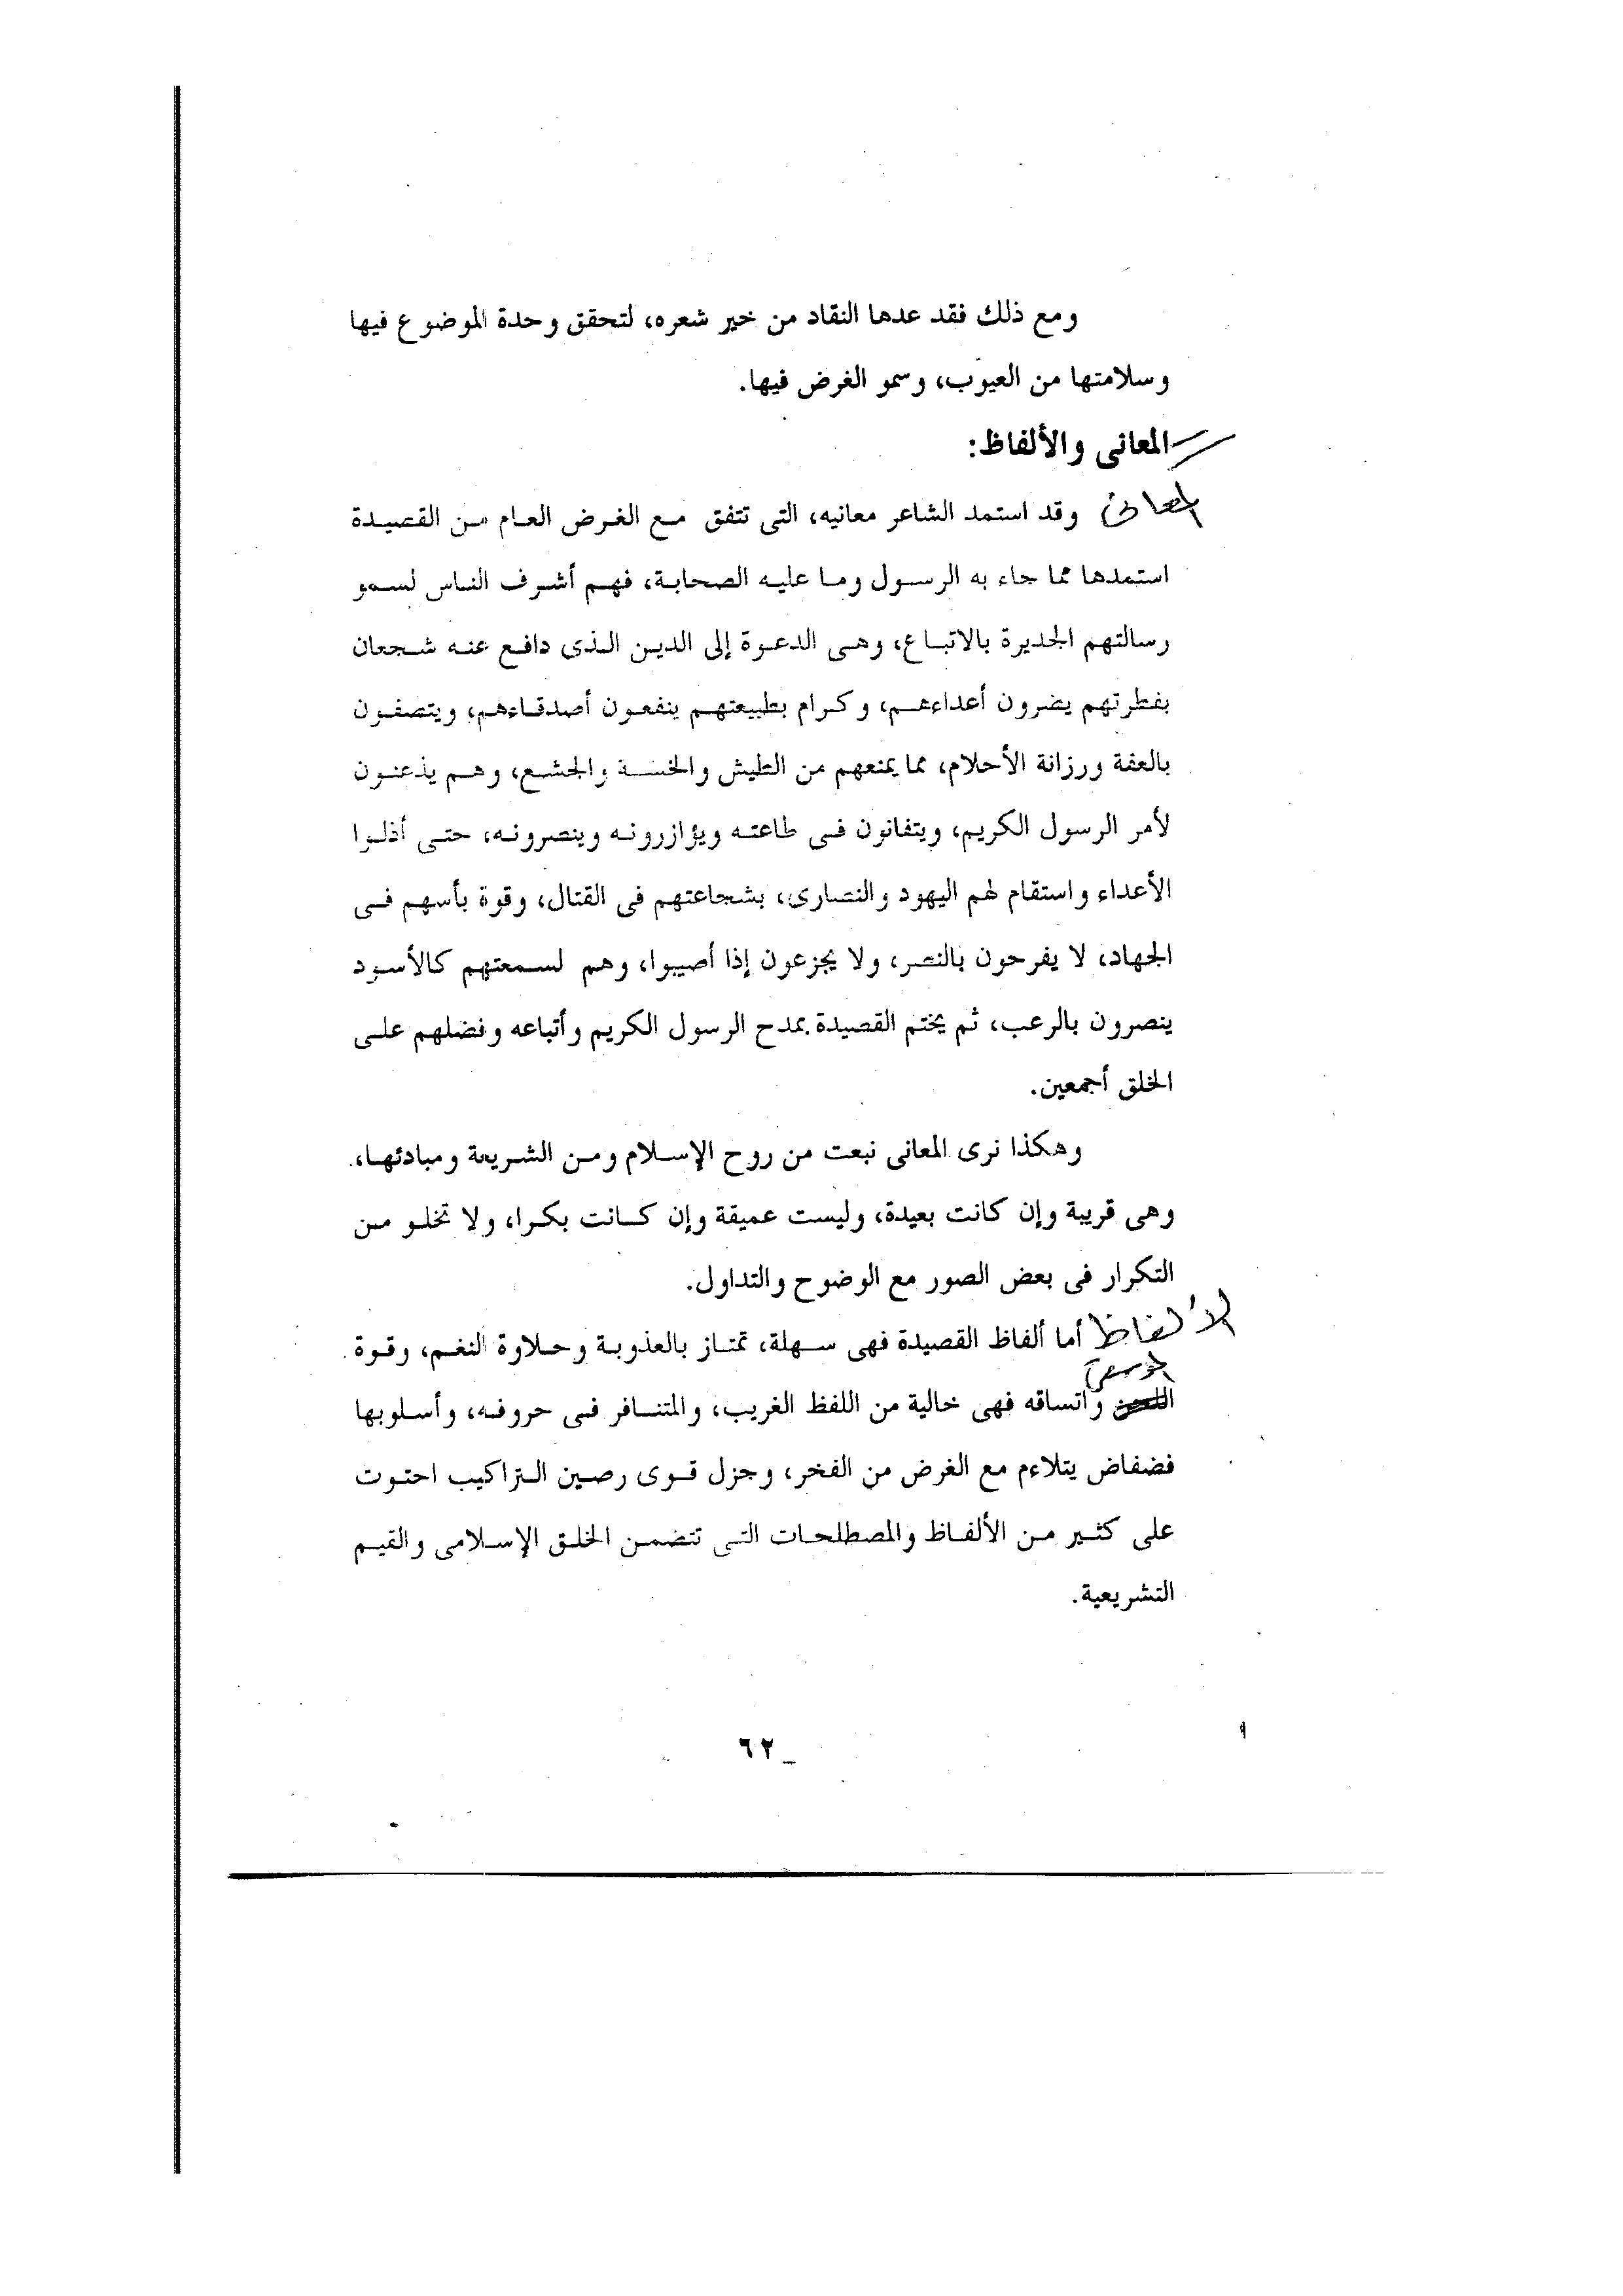 ومع ذلك فقد عدها النقاد من خير شعره، لتحقق وحدة الموضوع فيها
وسلامتها من العيوب، وسمو الغرض فيها.
المعانى والألفاظ:
المعانى وقد استمد الشاعر معانيه، التى تتفق مع الغرض العام من القصيدة
استمدها مما جاء به الرسول وما عليه الصحابة، فهم أشرف الناس لسمو
رسالتهم الجديرة بالاتباع، وهى الدعوة إلى الدين الذى دافع عنه شجعان
بفطرتهم يضرون أعداءهم، وكرام بطبيعتهم ينفعون أصدقاءهم، ويتصفون
بالعفة ورزانة الأحلام، مما يمنعهم من الطيش والخسة والجشع، وهم يذعنون
لأمر الرسول الكريم، ويتفانون فى طاعته ويؤازرونه وينصرونه، حتى أذلوا
الأعداء واستقام لهم اليهود والنصارى، بشجاعتهم فى القتال، وقوة بأسهم فى
الجهاد، لا يفرحون بالنصر، ولا يجزعون إذا أصيبوا، وهم لسمعتهم كالأسود
ينصرون بالرعب، ثم يختم القصيدة بمدح الرسول الكريم وأتباعه وفضلهم على
الخلق أجمعين.
وهكذا نرى المعانى نبعت من روح الإسلام ومن الشريعة ومبادئها،
وهى قريبة وإن كانت بعيدة، وليست عميقة وإن كانت بكرا، ولا تخلو من
التكرار فى بعض الصور مع الوضوح والتداول.
الألفاظ أما ألفاظ القصيدة فهى سهلة، تمتاز بالعذوبة وحلاوة النغم، وقوة
واتساقه فهى خالية من اللفظ الغريب، والمتنافر فى حروفه، وأسلوبها
فضفاض يتلاءم مع الغرض من الفخر، وجزل قوى رصين التراكيب احتوت
على كثير من الألفاظ والمصطلحات التى تتضمن الخلق الإسلامى والقيم
التشريعية.
٦٢